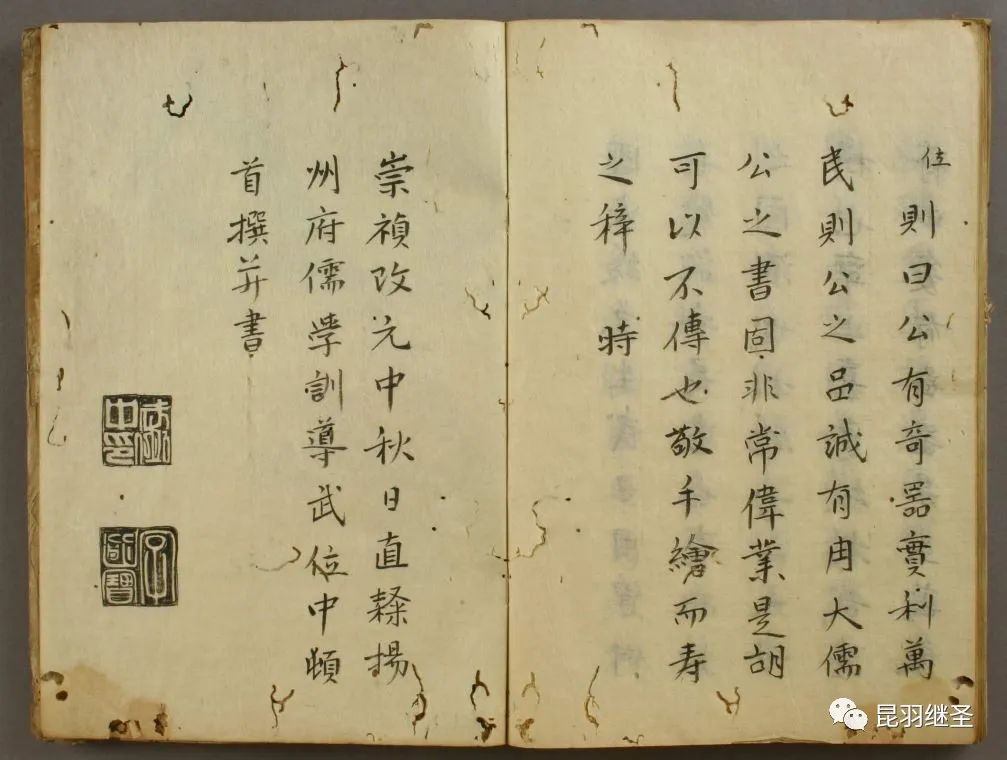 位則曰公有奇器實利萬
民則公之品誠有用大儒
公之書固非常偉業是胡
可以不傳也敬手繪而寿
之梓 時
崇禎改元中秋日直隸揚
州府儒學訓導武位中頓
首撰并書
武位中印
昆羽继圣